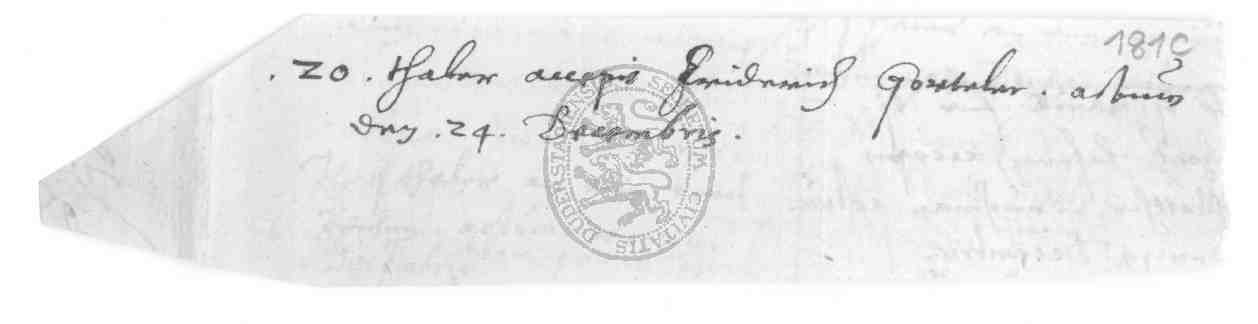 1819
. 20 . thaler accepit Friderich Gorteler .
den . 24 . Decembris .
SECRETUM CIVITATIS DUDERSTADENSIS